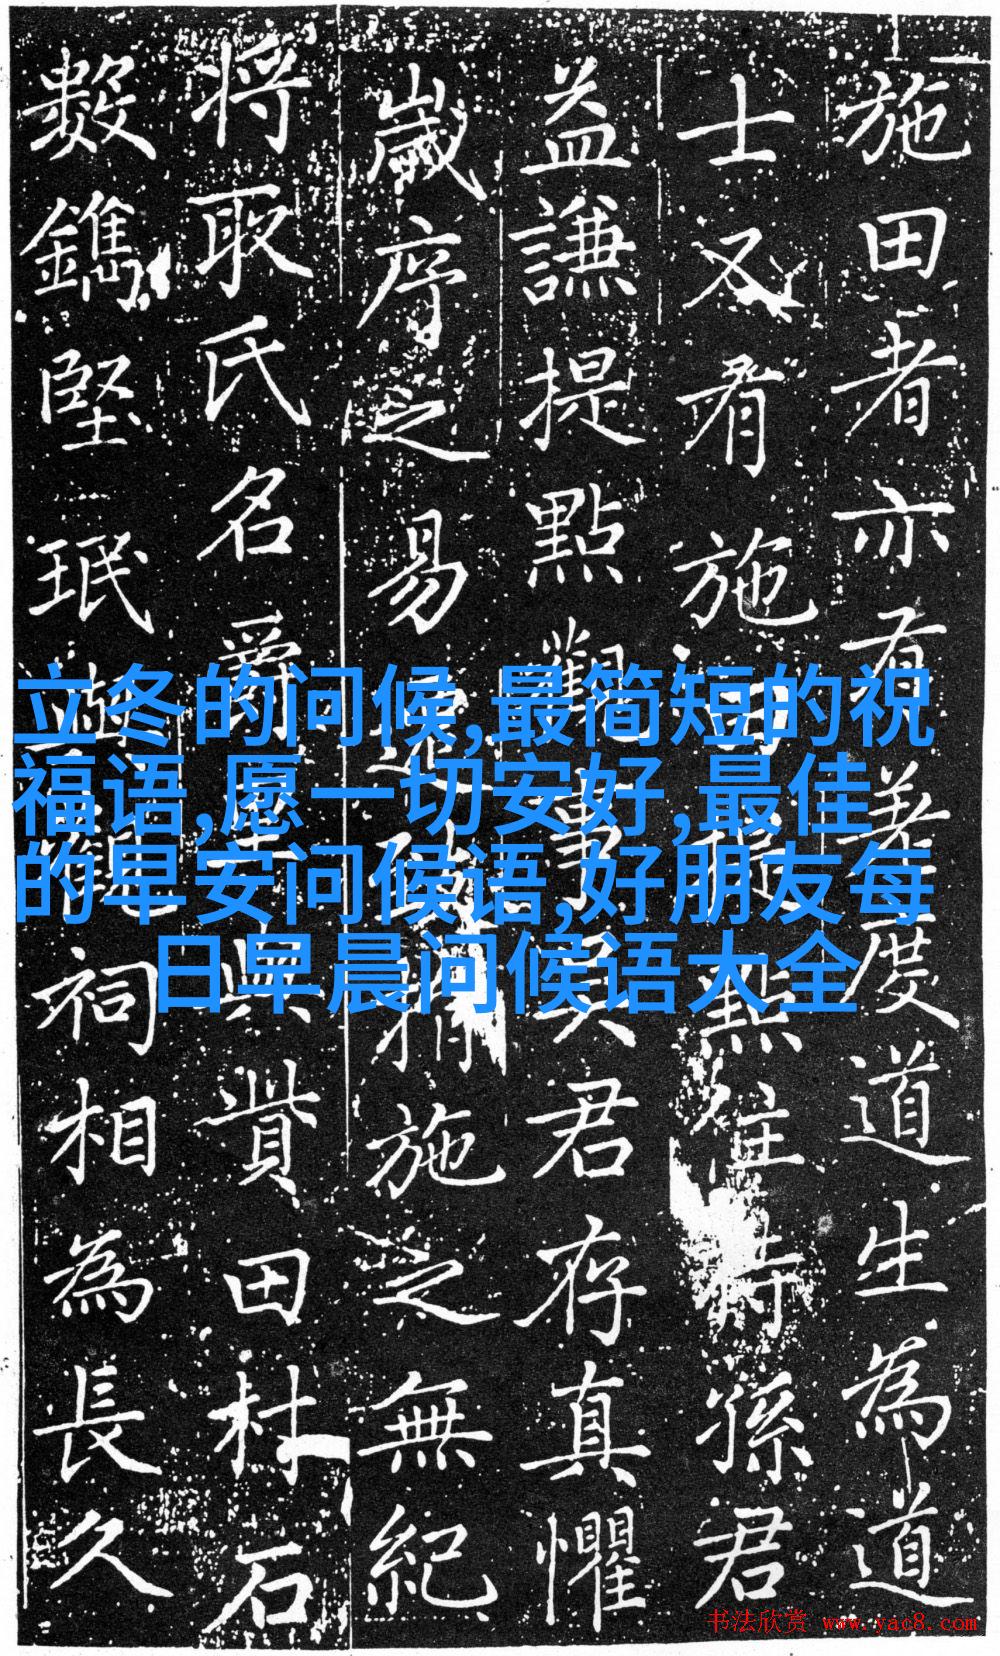 施田者亦有著度道生為道
士又有施田
點住持孫君
益謙提點觀事
君存真懼
歲序之易
施之無紀
將取氏名爵里
與貲田杜石
数鐫堅珉
祠相為長久
立冬的问候,最简短的祝
福语,愿一切安好,最佳
的早安问候语,好朋友每
日早晨问候语大全
书法欣赏 www.yac8.com